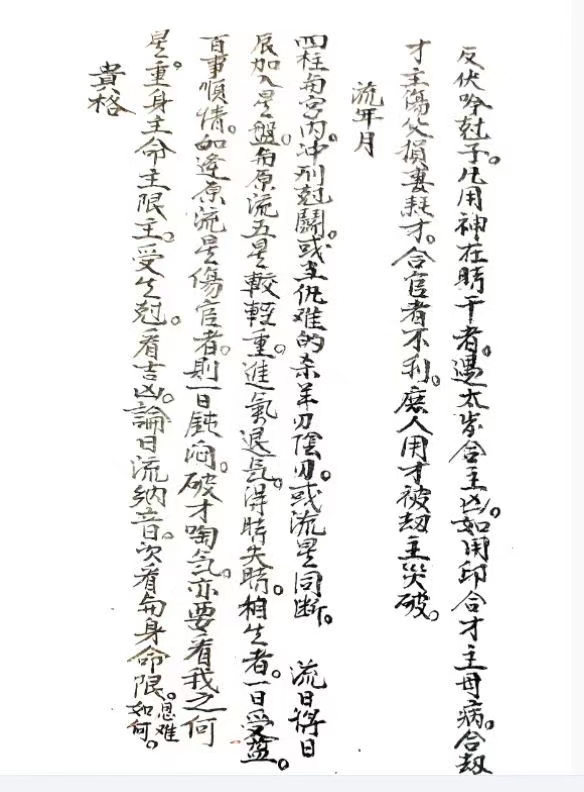 反伏吟尅子。凡用神在時干者。遇太岁合主凶。如用印合才主母病。合刼
才主傷父損妻耗才。合官者不利。庶人用才被刼主災破。
流年月
四柱與宮內。冲刑尅鬭。或主仇难的杀羊刃陰刃。或流星同断。 流日將日
辰加入星盤。與原流五星較輕重。進氣退气。得時失時。相生者。一日受益。
百事順情。如逢原流星傷官者。則一日鈍闷。破才啕气。亦要看我之何
星。重身主命主限主。受生尅。看吉凶。論日流納音。次看與身命限。恩难如何。
貴格